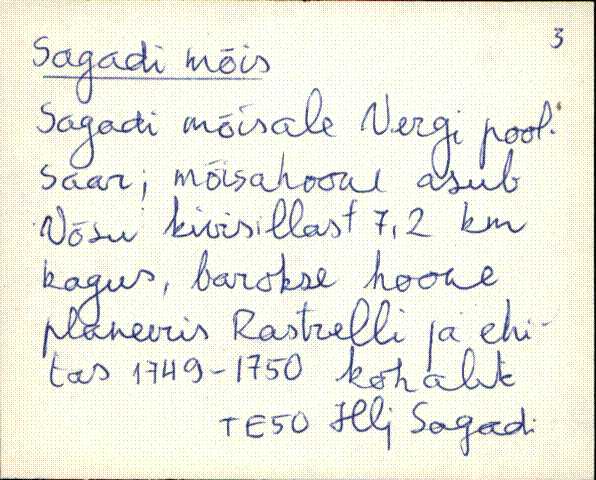 3
Sagadi mõis
Sagadi mõisale Vergi pool.
saar; mõisahoone asub
Võsu kivisillast 7,2 km
kagus, barokse hoone
planeeris Rastrelli ja ehi-
tas 1749-1750 koh. alt
TE50 Hlj Sagadi